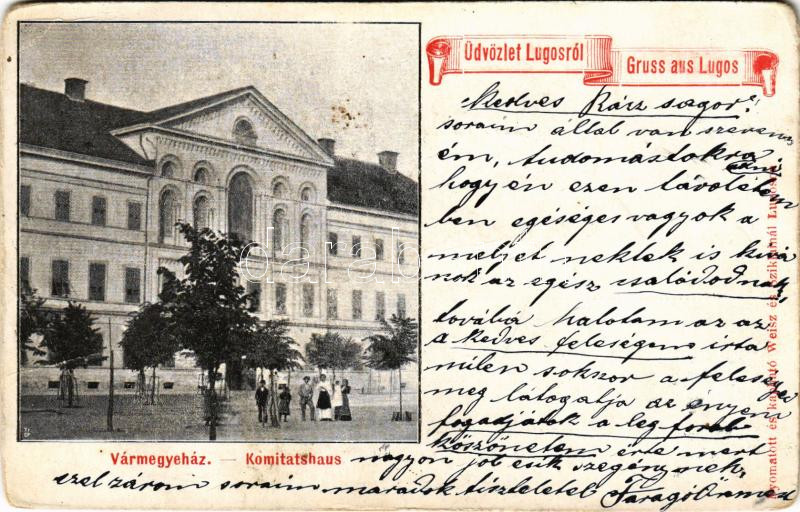 Üdvözlet Lugosról
Gruss aus Lugos
Kedves Rácz sogor!
soraim által van szerencs
ém, tudomástokra
adni
hogy én ezen távolet
ben egéséges vagyok a
meljet nektek is kivá
nok az egész családodnak
továbá halotam az az
a kedves feleségem irta
milen sokszor a feleséged
meg látogatja az enyém
fogadjátok a leg
köszönetem érte mert
nagyon jol esik szegénynek,
ezel zárom soraim maradok tiszteletel Faragó
Vármegyeház. — Komitatshaus
Nyomatott és kapható Weisz és Sziklainál Lugos
darabanth